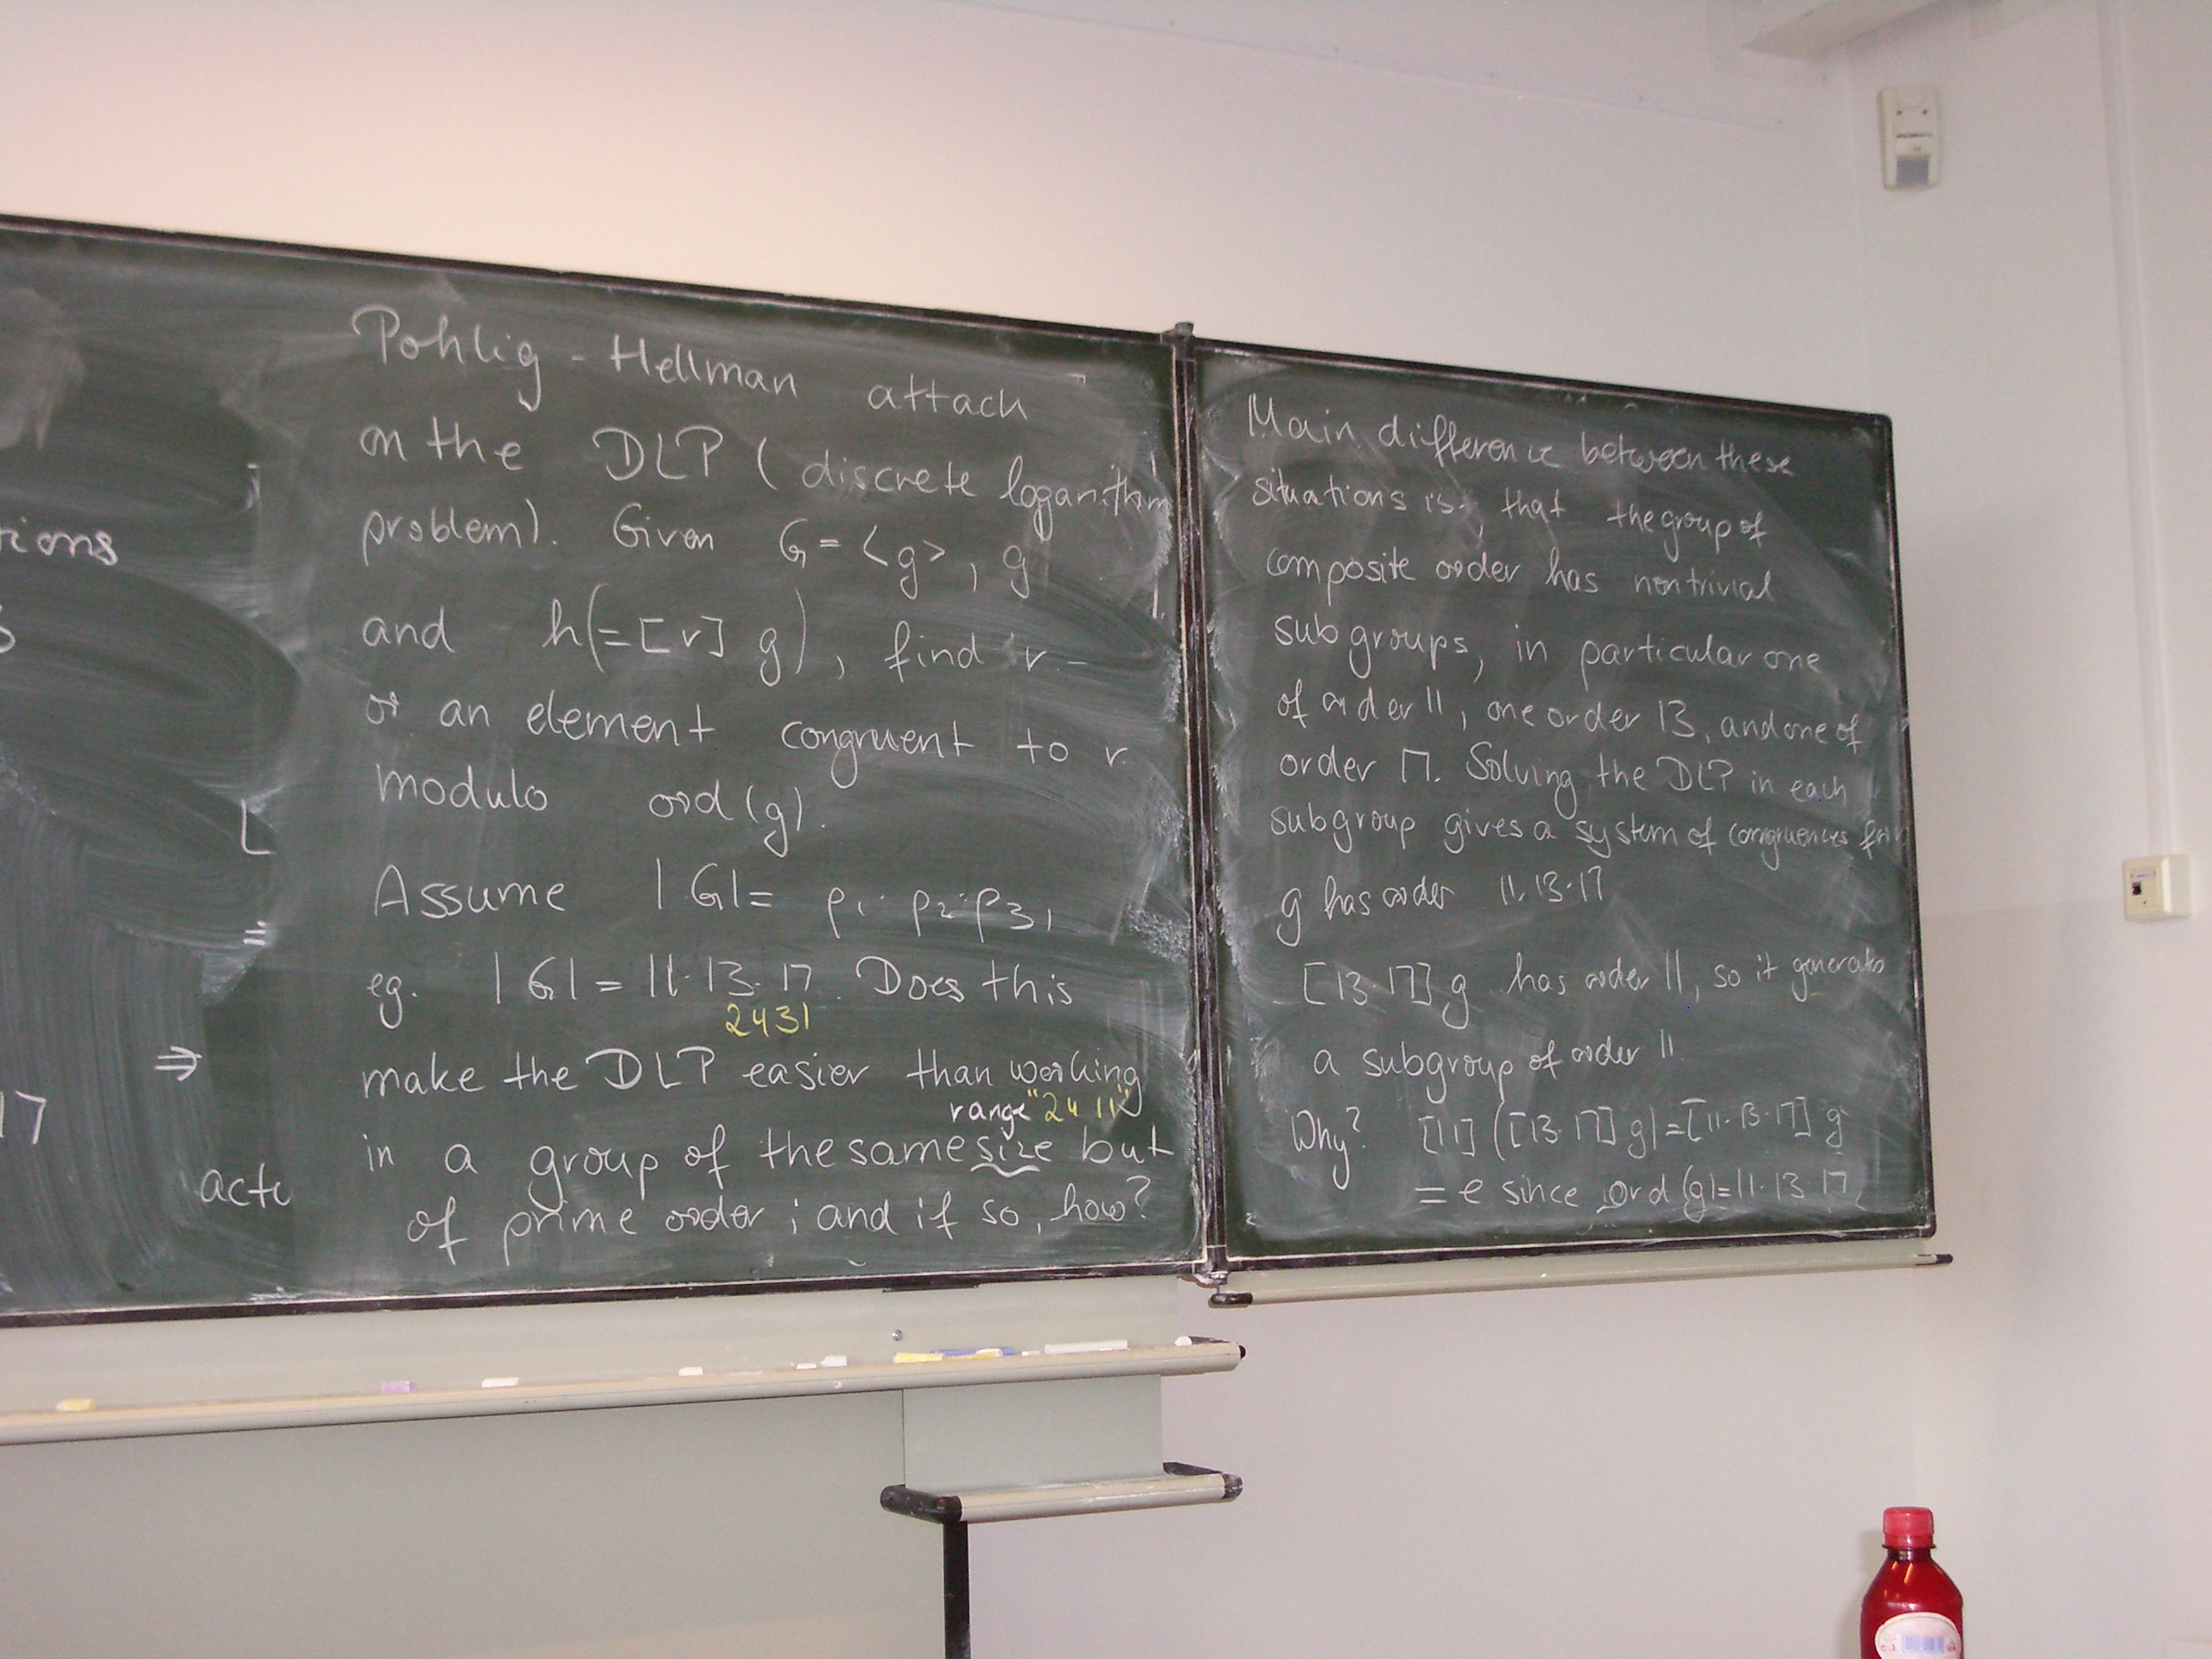 tions
17
⇒
Pohlig - Hellman attack
on the DLP (discrete logarithm
problem). Given G = <g>, g
and h(=[r] g), find r -
or an element congruent to r
modulo ord(g).
Assume |G| = p1·p2·p3,
eg. |G| = 11·13·17. Does this
2431
make the DLP easier than working
range "2411"
in a group of the same size but
of prime order; and if so, how?
Main difference between these
situations is, that the group of
composite order has nontrivial
subgroups, in particular one
of order 11, one order 13, and one of
order 17. Solving the DLP in each
subgroup gives a system of congruences for r
g has order 11·13·17
[13·17] g has order 11, so it generates
a subgroup of order 11.
Why? [11] ([13·17] g) = [11·13·17] g
= e since ord (g) = 11·13·17